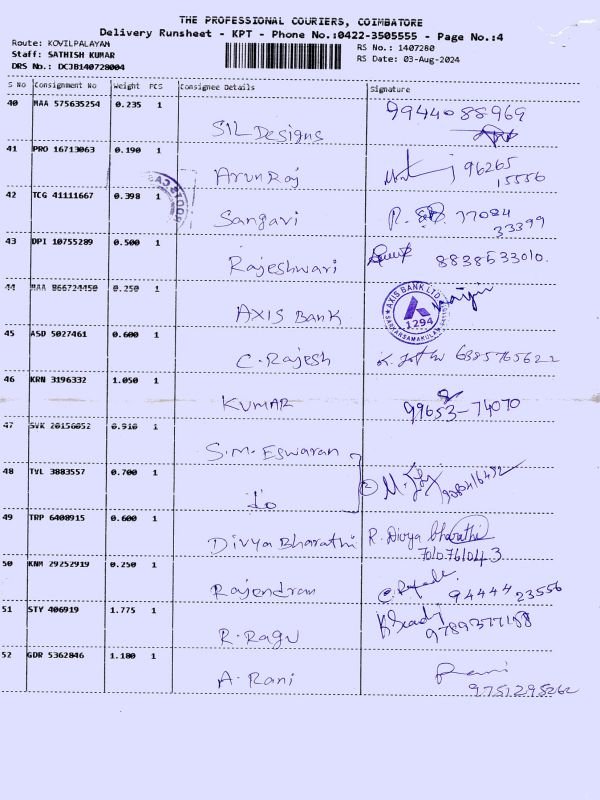 THE PROFESSIONAL COURIERS, COIMBATORE
Delivery Runsheet - KPT - Phone No.:0422-3505555 - Page No.:4
Route: KOVILPALAYAM
Staff: SATHISH KUMAR
DRS No.: DCJB140728004
RS No.: 1407280
RS Date: 03-Aug-2024
S No Consignment No Weight PCS Consignee Details Signature
40 MAA 575635254 0.235 1 SIL Designs 9944088969
41 PRO 16713063 0.190 1 Arun Raj 96265
15556
42 TCG 41111667 0.398 1 Sangavi R. 77084
33399
43 DPI 10755289 0.500 1 Rajeshwari 8838533010.
44 MAA 866724450 0.250 1 AXIS Bank
AXIS BANK LTD
1294
45 ASD 5027461 0.600 1 C. Rajesh 6385765622
46 KRN 3196332 1.050 1 KUMAR 99653-74070
47 SVK 20156052 0.910 1 S.M. Eswaran
48 TVL 3883557 0.700 1 (2) M.
49 TRP 6408915 0.600 1 Divya Bharathi R. Divya bharathi
7010761043
50 KNM 29252919 0.250 1 Rajendran 94444 23556
51 STY 406919 1.775 1 R. Ragu 9789377158
52 GDR 5362846 1.180 1 A. Rani Rani
9751295262